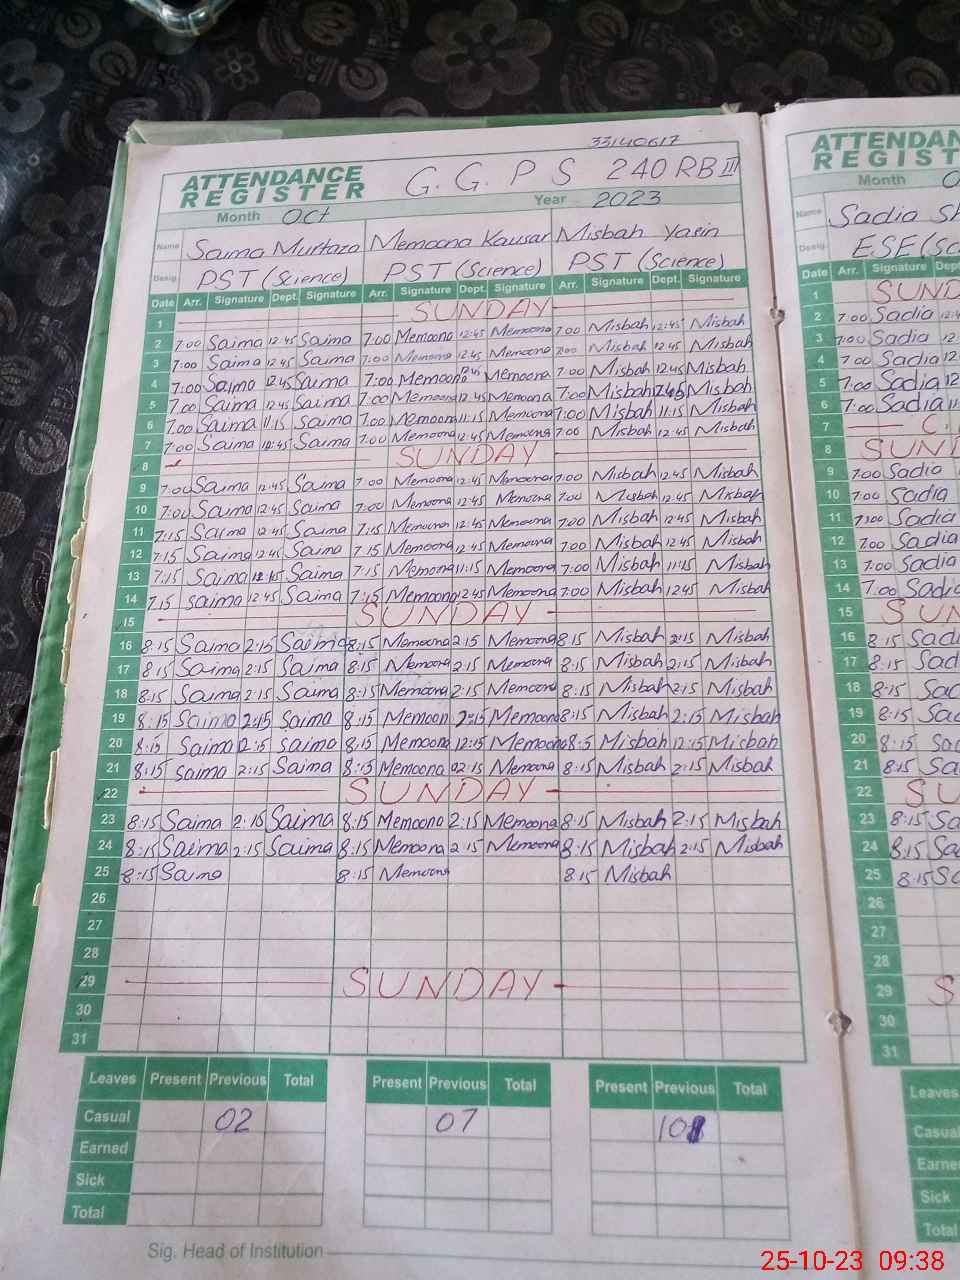 33140617
ATTENDANCE REGISTER G.G.P S 240 RB III
Month Oct Year 2023
Name Saima Murtaza Memoona Kausar Misbah Yasin
Desig. PST (Science) PST (Science) PST (Science)
Date Arr. Signature Dept. Signature Arr. Signature Dept. Signature Arr. Signature Dept. Signature
1 SUNDAY
2 7:00 Saima 12:45 Saima 7:00 Memoona 12:45 Memoona 7:00 Misbah 12:45 Misbah
3 7:00 Saima 12:45 Saima 7:00 Memoona 12:45 Memoona 7:00 Misbah 12:45 Misbah
4 7:00 Saima 12:45 Saima 7:00 Memoona 12:45 Memoona 7:00 Misbah 12:45 Misbah
5 7:00 Saima 12:45 Saima 7:00 Memoona 12:45 Memoona 7:00 Misbah 12:45 Misbah
6 7:00 Saima 11:15 Saima 7:00 Memoona 11:15 Memoona 7:00 Misbah 11:15 Misbah
7 7:00 Saima 12:45 Saima 7:00 Memoona 12:45 Memoona 7:00 Misbah 12:45 Misbah
8 SUNDAY
9 7:00 Saima 12:45 Saima 7:00 Memoona 12:45 Memoona 7:00 Misbah 12:45 Misbah
10 7:00 Saima 12:45 Saima 7:00 Memoona 12:45 Memoona 7:00 Misbah 12:45 Misbah
11 7:15 Saima 12:45 Saima 7:15 Memoona 12:45 Memoona 7:00 Misbah 12:45 Misbah
12 7:15 Saima 12:45 Saima 7:15 Memoona 12:45 Memoona 7:00 Misbah 12:45 Misbah
13 7:15 Saima Saima 7:15 Memoona 11:15 Memoona 7:00 Misbah 11:15 Misbah
14 7:15 Saima 12:45 Saima 7:15 Memoona 12:45 Memoona 7:00 Misbah 12:45 Misbah
15 SUNDAY
16 8:15 Saima 2:15 Saima 8:15 Memoona 2:15 Memoona 8:15 Misbah 2:15 Misbah
17 8:15 Saima 2:15 Saima 8:15 Memoona 2:15 Memoona 8:15 Misbah 2:15 Misbah
18 8:15 Saima 2:15 Saima 8:15 Memoona 2:15 Memoona 8:15 Misbah 2:15 Misbah
19 8:15 Saima 2:15 Saima 8:15 Memoon 2:15 Memoona 8:15 Misbah 2:15 Misbah
20 8:15 Saima 12:15 Saima 8:15 Memoona 12:15 Memoona 8:15 Misbah 12:15 Misbah
21 8:15 Saima 2:15 Saima 8:15 Memoona 02:15 Memoona 8:15 Misbah 2:15 Misbah
22 SUNDAY
23 8:15 Saima 2:10 Saima 8:15 Memoona 2:15 Memoona 8:15 Misbah 2:15 Misbah
24 8:15 Saima 2:15 Saima 8:15 Memoona 2:15 Memoona 8:15 Misbah 2:15 Misbah
25 8:15 Saima 8:15 Memoona 8:15 Misbah
26
27
28
29 SUNDAY
30
31
Leaves Present Previous Total Present Previous Total Present Previous Total
Casual 02 07 10
Earned
Sick
Total
Sig. Head of Institution
ATTENDAN
REGIST
Month O
Name Sadia Sh
Desig. ESE (Sc
Date Arr. Signature Dept
1 SUND
2 7:00 Sadia 12:4
3 7:00 Sadia 12
4 7:00 Sadia 12
5 7:00 Sadia 12
6 7:00 Sadia 11
7 C.
8 SUN
9 7:00 Sadia
10 7:00 Sadia
11 7:00 Sadia
12 7:00 Sadia
13 7:00 Sadia
14 7:00 Sadia
15 SUN
16 8:15 Sadi
17 8:15 Sad
18 8:15 Sad
19 8:15 Sa
20 8:15 Sa
21 8:15 Sa
22 SU
23 8:15 Sa
24 8:15 Sa
25 8:15 Sa
26
27
28
29 S
30
31
Leaves
Casual
Earne
Sick
Total
25-10-23 09:38